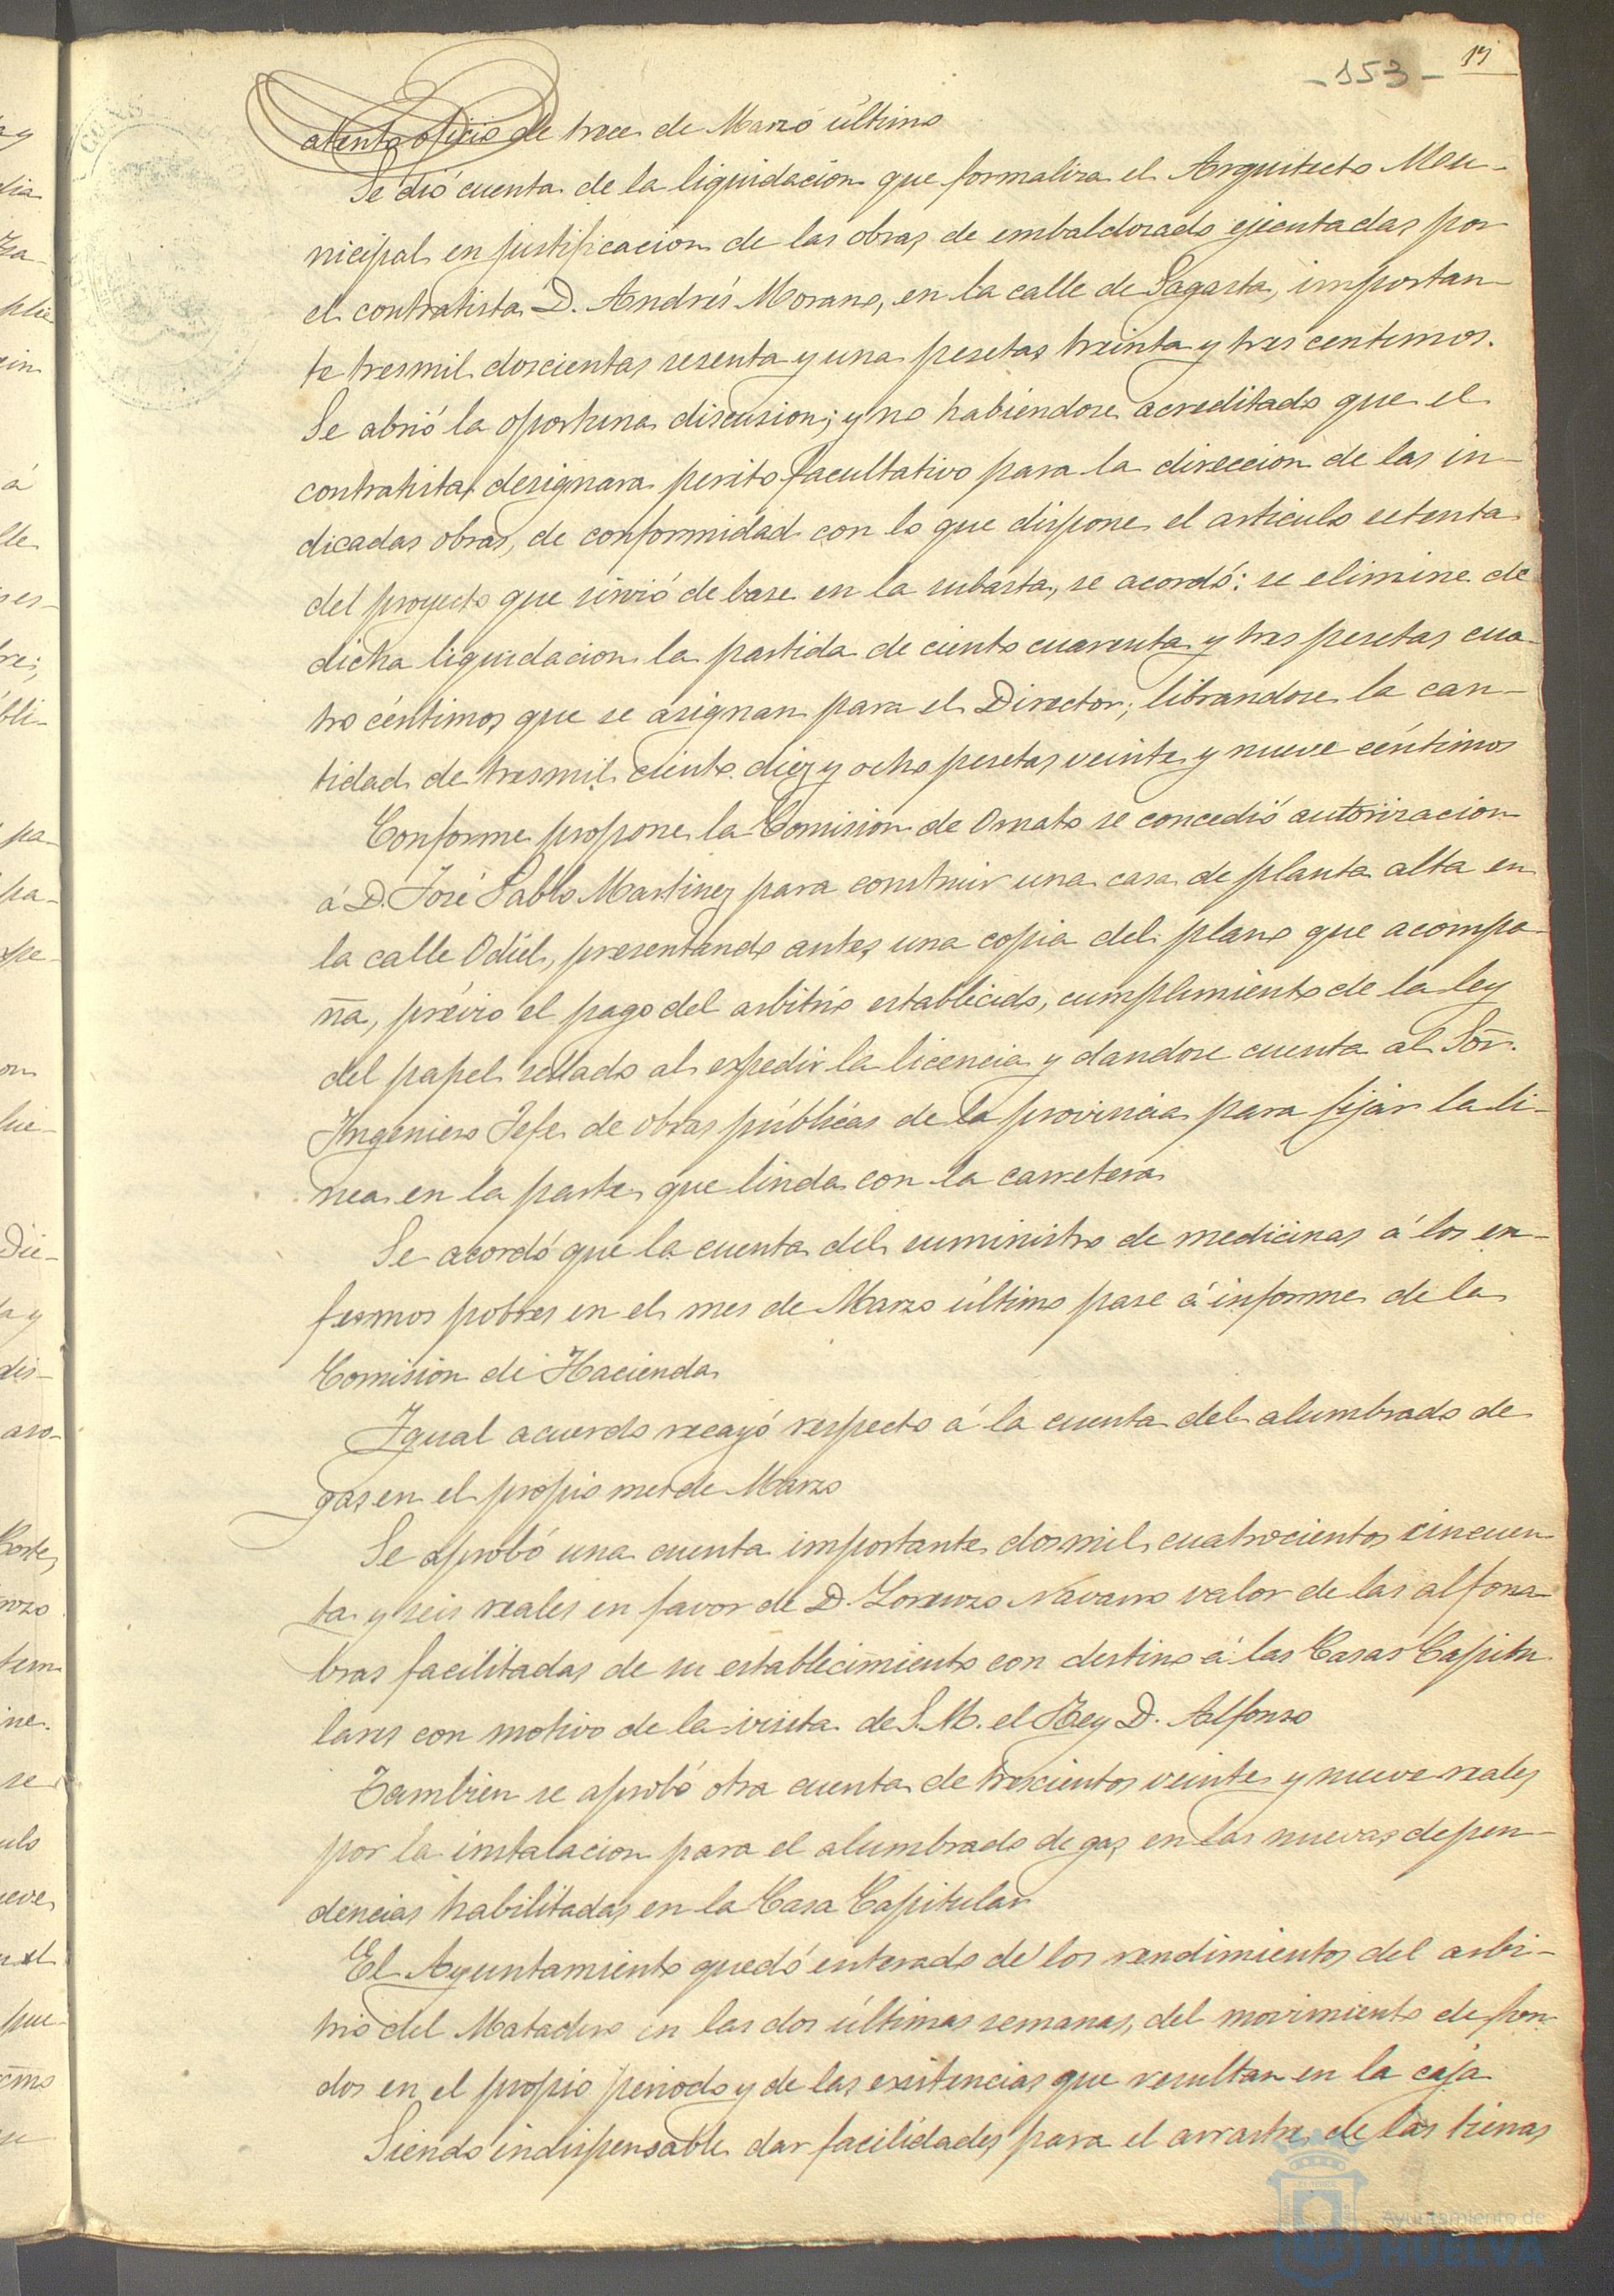 -153-
17
atento oficio de trece de Marzo último
Se dió cuenta de la liquidacion que formaliza el Arquitecto Mu-
nicipal en justificacion de las obras de embaldosado ejecutadas por
el contratista D. Andrés Morano, en la calle de Sagasta, importan-
te tresmil doscientas sesenta y una pesetas treinta y tres centimos.
Se abrió la oportuna discusion; y no habiéndose acreditado que el
contratista designara perito facultativo para la direccion de las in-
dicadas obras, de conformidad con lo que dispone el articulo setenta
del proyecto que sirvió de base en la subasta, se acordó: se elimine de
dicha liquidacion la partida de ciento cuarenta y tres pesetas cua-
tro céntimos que se asignan para el Director; librandose la can-
tidad de tresmil ciento diez y ocho pesetas veinte y nueve céntimos
Conforme propone la Comision de Ornato se concedió autorizacion
á D. José Pablo Martinez para construir una casa de planta alta en
la calle Odiel, presentando antes una copia del plano que acompa-
ña, prévio el pago del arbitrio establecido, cumplimiento de la ley
del papel sellado al expedir la licencia y dandose cuenta al Sõr.
Ingeniero Jefe de obras públicas de la provincia para fijar la li-
nea en la parte que linda con la carretera
Se acordó que la cuenta del suministro de medicinas á los en-
fermos pobres en el mes de Marzo último pase á informe de la
Comision de Hacienda
Igual acuerdo recayó respecto á la cuenta del alumbrado de
gas en el propio mes de Marzo
Se aprobó una cuenta importante dosmil cuatrocientos cincuen-
ta y seis reales en favor de D. Lorenzo Navarro valor de las alfom-
bras facilitadas de su establecimiento con destino á las Casas Capitu-
lares con motivo de la visita de S. M. el Rey D. Alfonso
Tambien se aprobó otra cuenta de trescientos veinte y nueve reales
por la instalacion para el alumbrado de gas en las nuevas depen-
dencias habilitadas en la Casa Capitular
El Ayuntamiento quedó enterado de los rendimientos del arbi-
trio del Matadero en las dos últimas semanas, del movimiento de fon-
dos en el propio periodo y de las existencias que resultan en la caja
Siendo indispensable dar facilidades para el arrastre de las
Ayuntamiento de
HUELVA